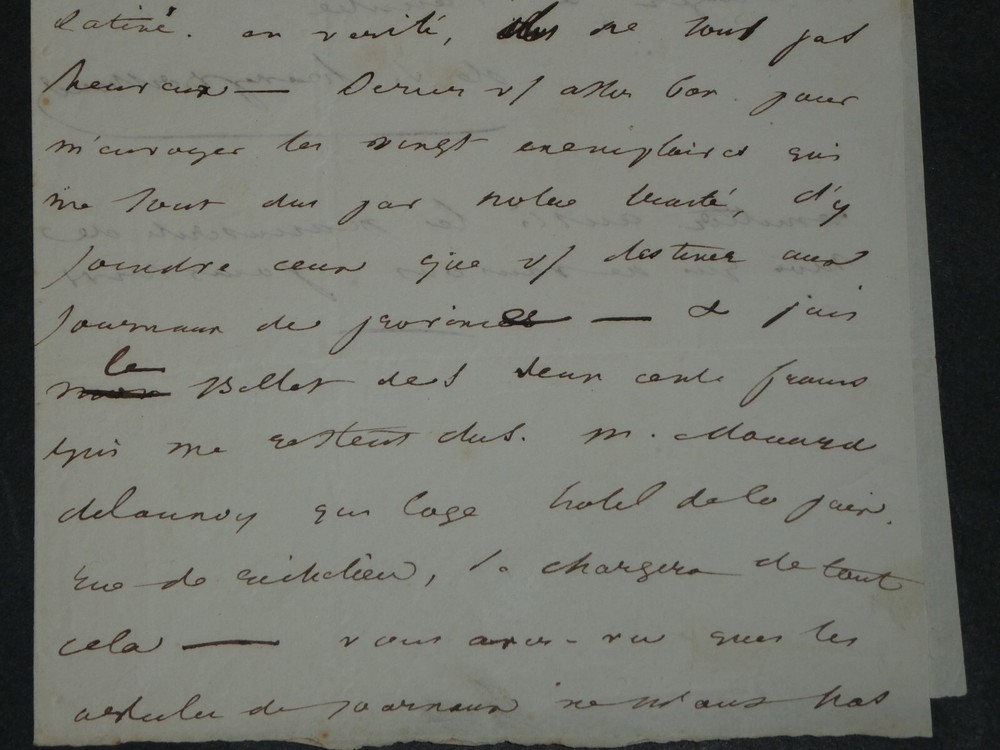 latine. en verité, ils ne sont pas
heureux — Seriez v/ assez bon pour
m'envoyer les vingt exemplaires qui
me sont dus par notre traité, d'y
joindre ceux que v/ destinez aux
journaux de province — & puis
le Billet des deux cents francs
qui me restent dus. M. Edouard
delaunoy qui loge hotel de la paix,
rue de richelieu, se chargera de tout
cela — vous avez vu que les
articles de journaux ne m'ont pas